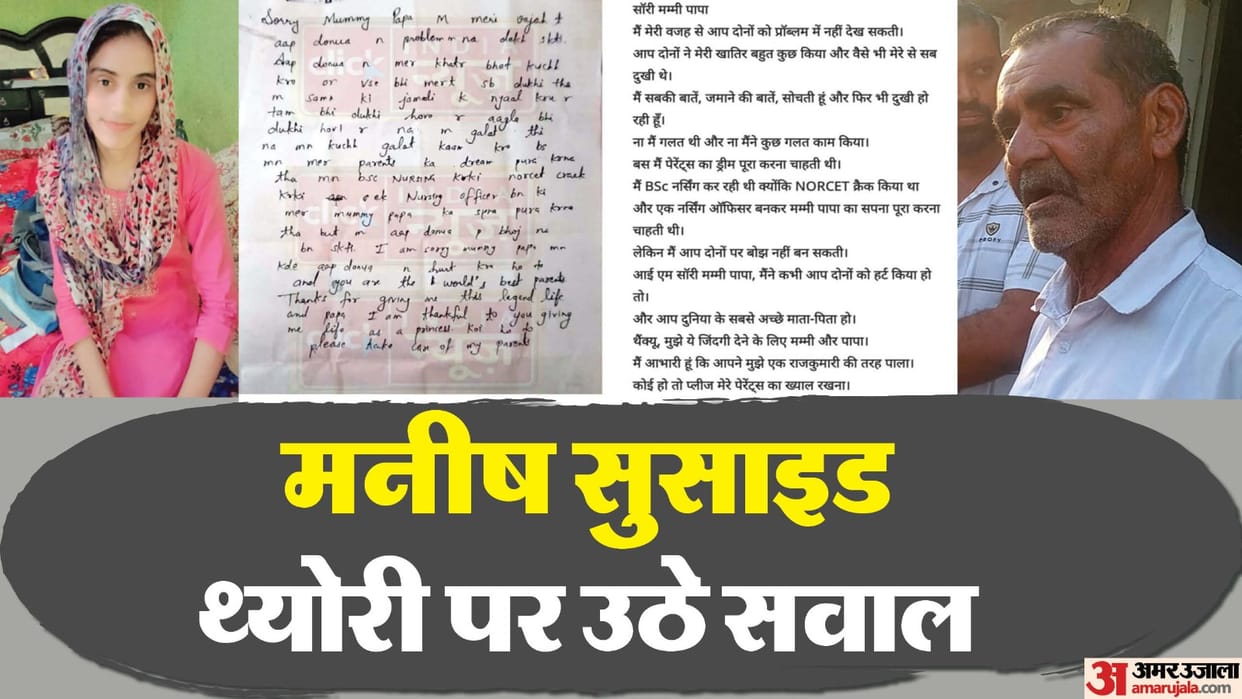 Sorry Mummy Papa M meri vajah t
aap donua n problem m na dekh skti.
Aap donua n mer khatr bhot kuchh
kro or vse bhi mert sb dukhi the
m sama ki jamadi k nyaal kru r
tam bhi dukhi horo r aagla bhi
dukhi horl r na m galat thi
na mn kuchh galat kaam kro bs
mn mer parents ka dream pura krna
tha mn bsc NURSING krki norcet crack
krki ek Nursing officer bn ki
mer mummy papa ka spna pura krna
tha but m aap donua p bhoj na
bn skti. I am sorry mummy papa mn
kde aap donua n hurt kro ho to
and you are the world's best parents.
Thanks for giving me this legend life
and papa I am thankful to you giving
me life as a princess koi ho to
please take care of my parents
सॉरी मम्मी पापा
मैं मेरी वजह से आप दोनों को प्रॉब्लम में नहीं देख सकती।
आप दोनों ने मेरी खातिर बहुत कुछ किया और वैसे भी मेरे से सब
दुखी थे।
मैं सबकी बातें, जमाने की बातें, सोचती हूं और फिर भी दुखी हो
रही हूँ।
ना मैं गलत थी और ना मैंने कुछ गलत काम किया।
बस मैं पेरेंट्स का ड्रीम पूरा करना चाहती थी।
मैं BSc नर्सिंग कर रही थी क्योंकि NORCET क्रैक किया था
और एक नर्सिंग ऑफिसर बनकर मम्मी पापा का सपना पूरा करना
चाहती थी।
लेकिन मैं आप दोनों पर बोझ नहीं बन सकती।
आई एम सॉरी मम्मी पापा, मैंने कभी आप दोनों को हर्ट किया हो
तो।
और आप दुनिया के सबसे अच्छे माता-पिता हो।
थैंक्यू, मुझे ये जिंदगी देने के लिए मम्मी और पापा।
मैं आभारी हूं कि आपने मुझे एक राजकुमारी की तरह पाला।
कोई हो तो प्लीज मेरे पेरेंट्स का ख्याल रखना।
मनीष सुसाइड
थ्योरी पर उठे सवाल
अमर उजाला
amarujala.com